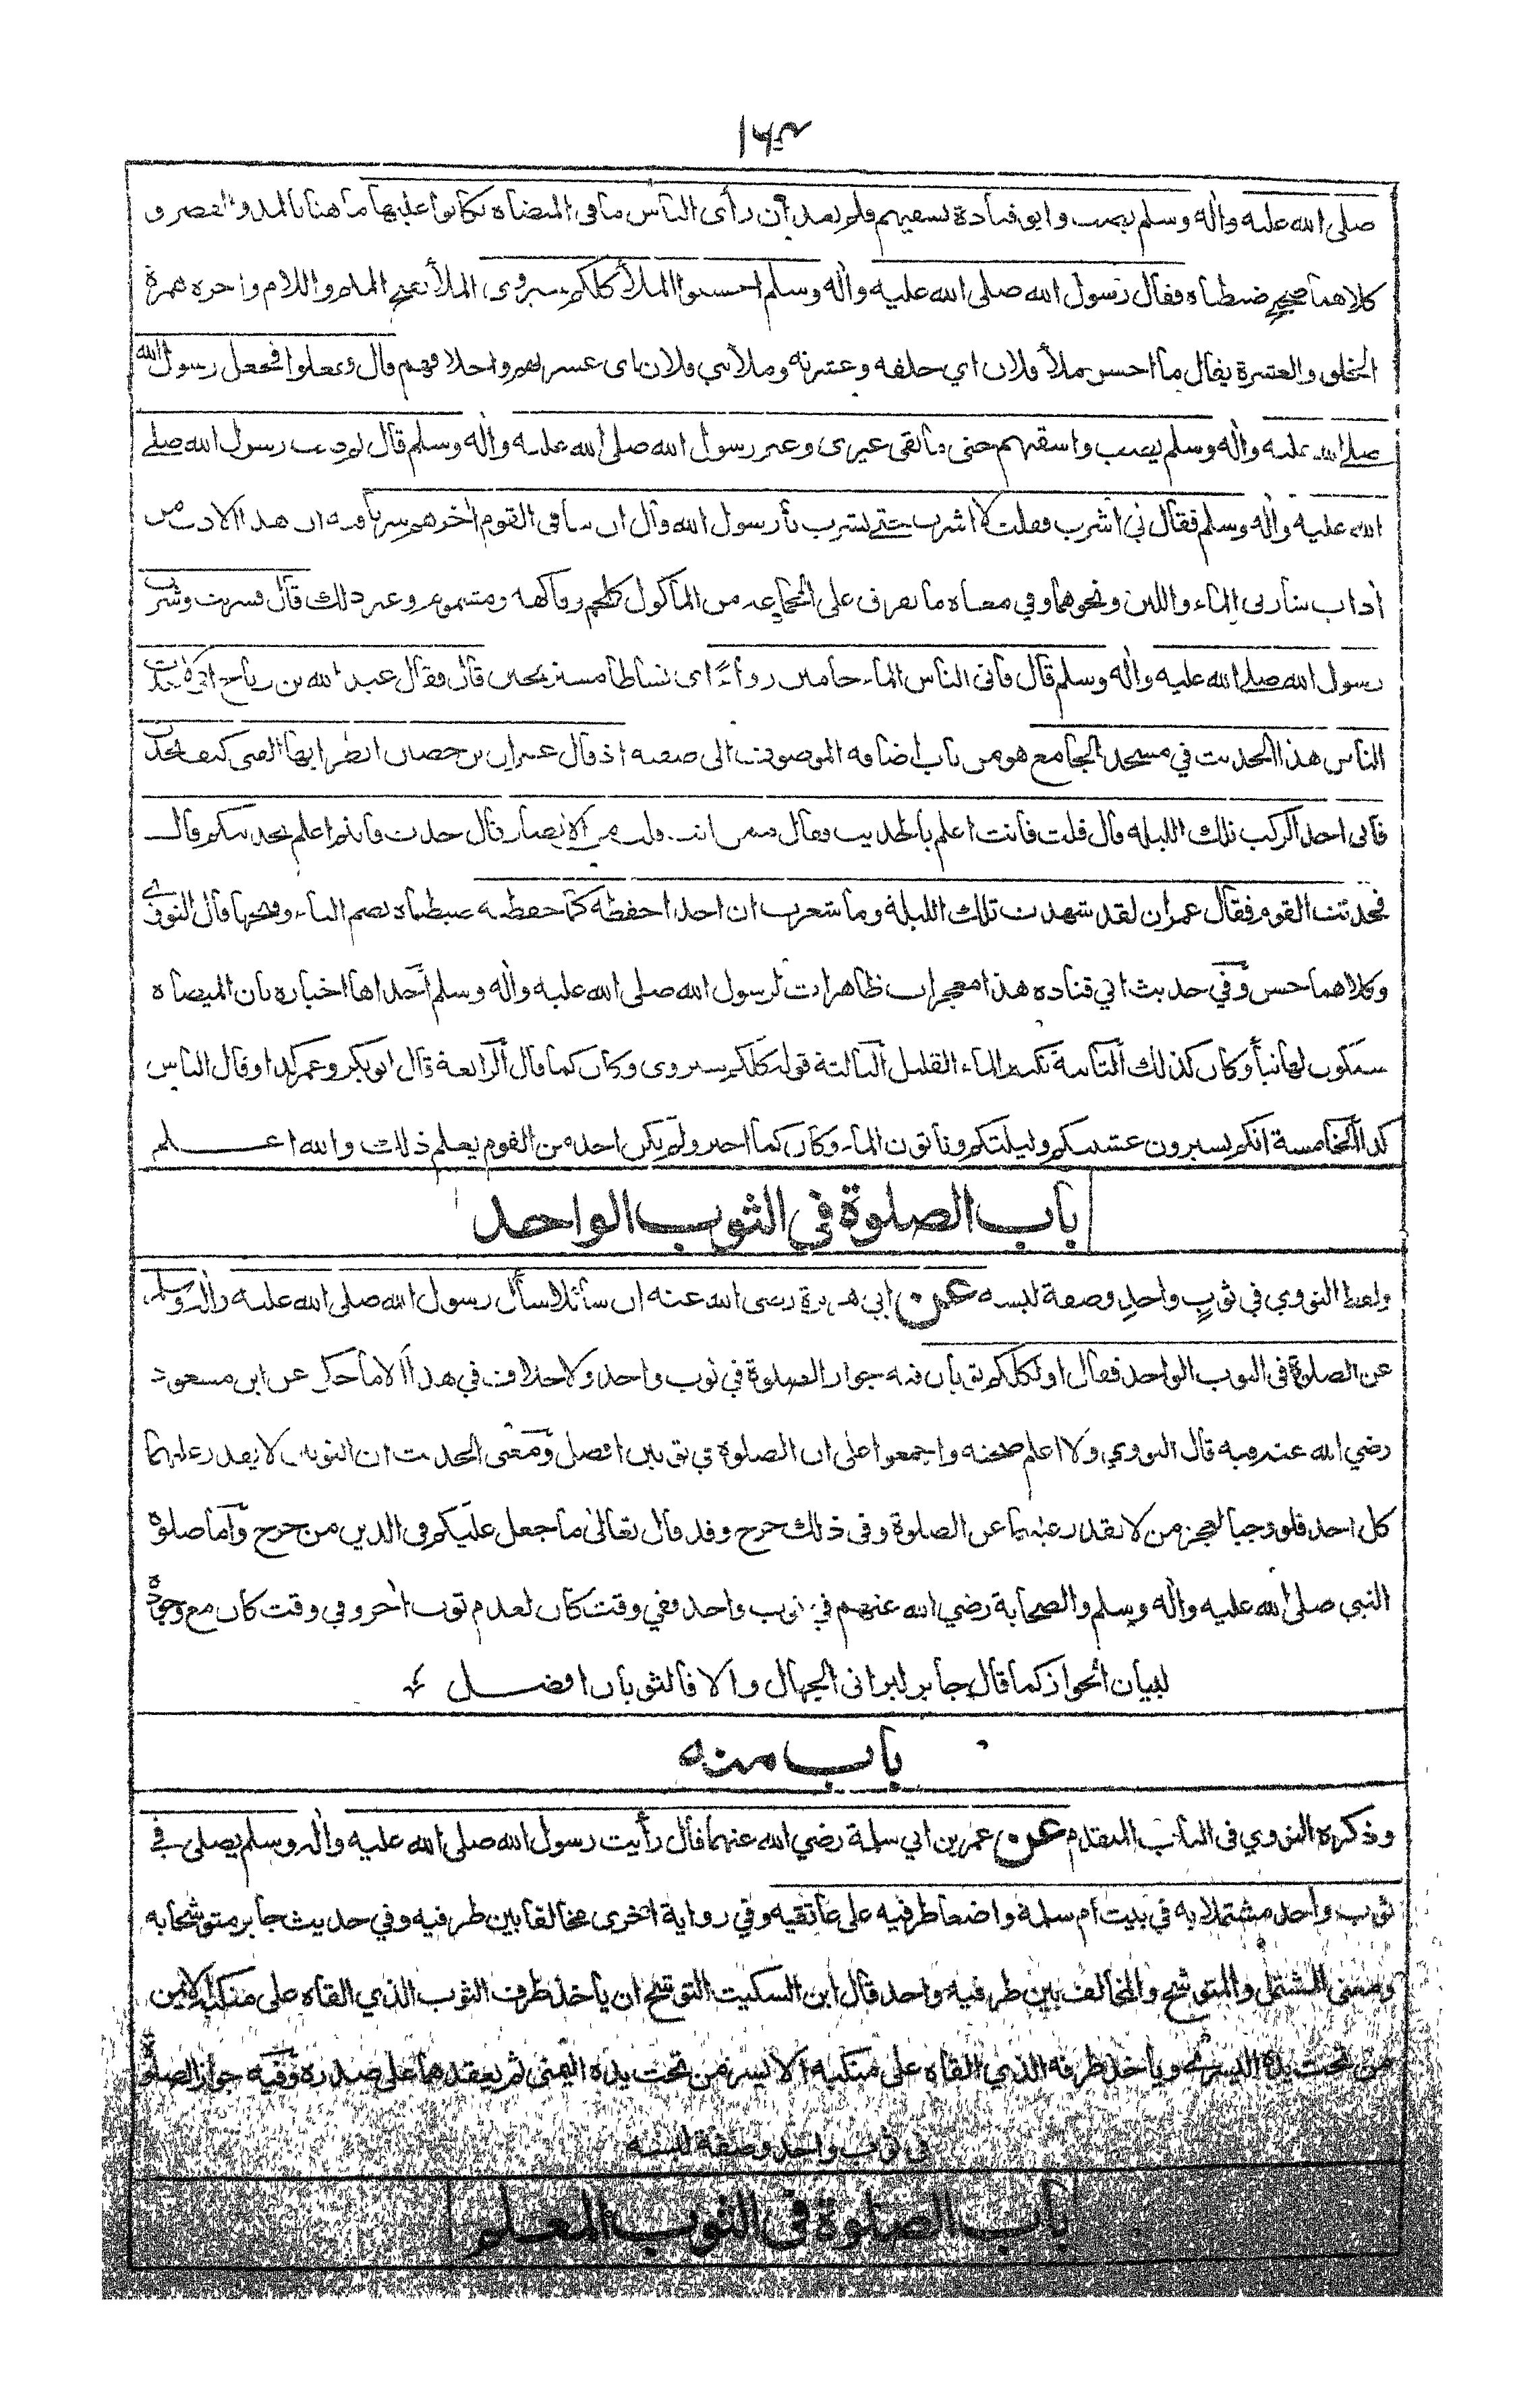 صلى الله عليه وآله وسلم يصب وابو قتادة يسقيهم فلم يعد ان رأى الناس ما في الميضاة تكابوا عليها ما هنا بالمد والقصر و
كلاهما صحيح ضبطاه فقال رسول الله صلى الله عليه وآله وسلم احسنوا الملأ كلكم سيروى الملأ بفتح الميم واللام واخره همزة
الخلق والعشرة يقال ما احسن ملأ فلان اي خلقه وعشرته وملأ بني فلان اي عشرتهم واخلاقهم قال ففعلوا فجعل رسول الله
صلى الله عليه وآله وسلم يصب واسقيهم حتى ما بقى غيرى وغير رسول الله صلى الله عليه وآله وسلم قال ثم صب رسول الله صلے
الله عليه وآله وسلم فقال لي اشرب فقلت لا اشرب حتے تشرب يا رسول الله قال ان ساقى القوم اخرهم شربا فيه ان هذا الادب من
اداب شاربى الماء واللبن ونحوهما وفي معناه ما يفرق على الجماعة من المأكول كلحم وفاكهة ومشموم وغير ذلك قال فشربت وشرب
رسول الله صلے الله عليه وآله وسلم قال فاتى الناس الماء جامين رواءً اى نشاطا مستريحين قال فقال عبد الله بن رباح اني لاحدث
الناس هذا الحديث في مسجد الجامع هو من باب اضافة الموصوف الى صفته اذ قال عمران بن حصين انظر ايها الفتى كيف تحدث
فانى احد الركب تلك الليلة قال قلت فانت اعلم بالحديث فقال ممن انت قلت من الانصار قال حدث فانتم اعلم بحديثكم قال
فحدثت القوم فقال عمران لقد شهدت تلك الليلة وما شعرت ان احدا حفظه كما حفظته ضبطناه بضم التاء وفتحها قال النووي
وكلاهما حسن وفي حديث ابي قتادة هذا معجزات ظاهرات لرسول الله صلى الله عليه وآله وسلم احداها اخباره بان الميضاة
سيكون لها نبأ وكان كذلك الثانية تكثير الماء القليل الثالثة قوله كلكم سيروى وكان كما قال الرابعة قال ابو بكر وعمر كذا وقال الناس
كذا الخامسة انكم تسيرون عشيتكم وليلتكم وتاتون الماء وكان كما اخبر ولم يكن احد من القوم يعلم ذلك والله اعلم
باب الصلوة في الثوب الواحد
ولفظ النووي في ثوبٍ واحدٍ وصفة لبسه عن ابي هريرة رضى الله عنه ان سائلا سأل رسول الله صلى الله عليه وآله وسلم
عن الصلوة في الثوب الواحد فقال او لكلكم ثوبان فيه جواز الصلوة في ثوب واحد ولا خلاف في هذا الا ما حكى عن ابن مسعود
رضي الله عنه فيه قال النووي ولا اعلم صحته واجمعوا على ان الصلوة في ثوبين افضل ومعنى الحديث ان الثوبين لا يقدر عليهما
كل احد فلو وجبا لعجز من لا يقدر عليهما عن الصلوة وفي ذلك حرج وقد قال تعالى ما جعل عليكم في الدين من حرج واما صلوة
النبي صلى الله عليه وآله وسلم والصحابة رضي الله عنهم في ثوب واحد ففي وقت كان لعدم ثوب اخر وفي وقت كان مع وجوده
لبيان الجواز كما قال جابر ليراني الجهال والا فالثوبان افضل
باب منه
وذكره النووي في الباب المتقدم عن عمر بن ابي سلمة رضي الله عنهما قال رأيت رسول الله صلى الله عليه وآله وسلم يصلى في
ثوب واحد مشتملا به في بيت ام سلمة واضعا طرفيه على عاتقيه وفي رواية اخرى مخالفا بين طرفيه وفي حديث جابر متوشحا به
ومعنى المشتمل والمتوشح والمخالف بين طرفيه واحد قال ابن السكيت التوشح ان ياخذ طرف الثوب الذي القاه على منكبه الايمن
من تحت يده اليسرى وياخذ طرفه الذي القاه على منكبه الايسر من تحت يده اليمنى ثم يعقدهما على صدره وفيه جواز الصلوة
في ثوب واحد وصفة لبسه
باب الصلوة في الثوب المعلم